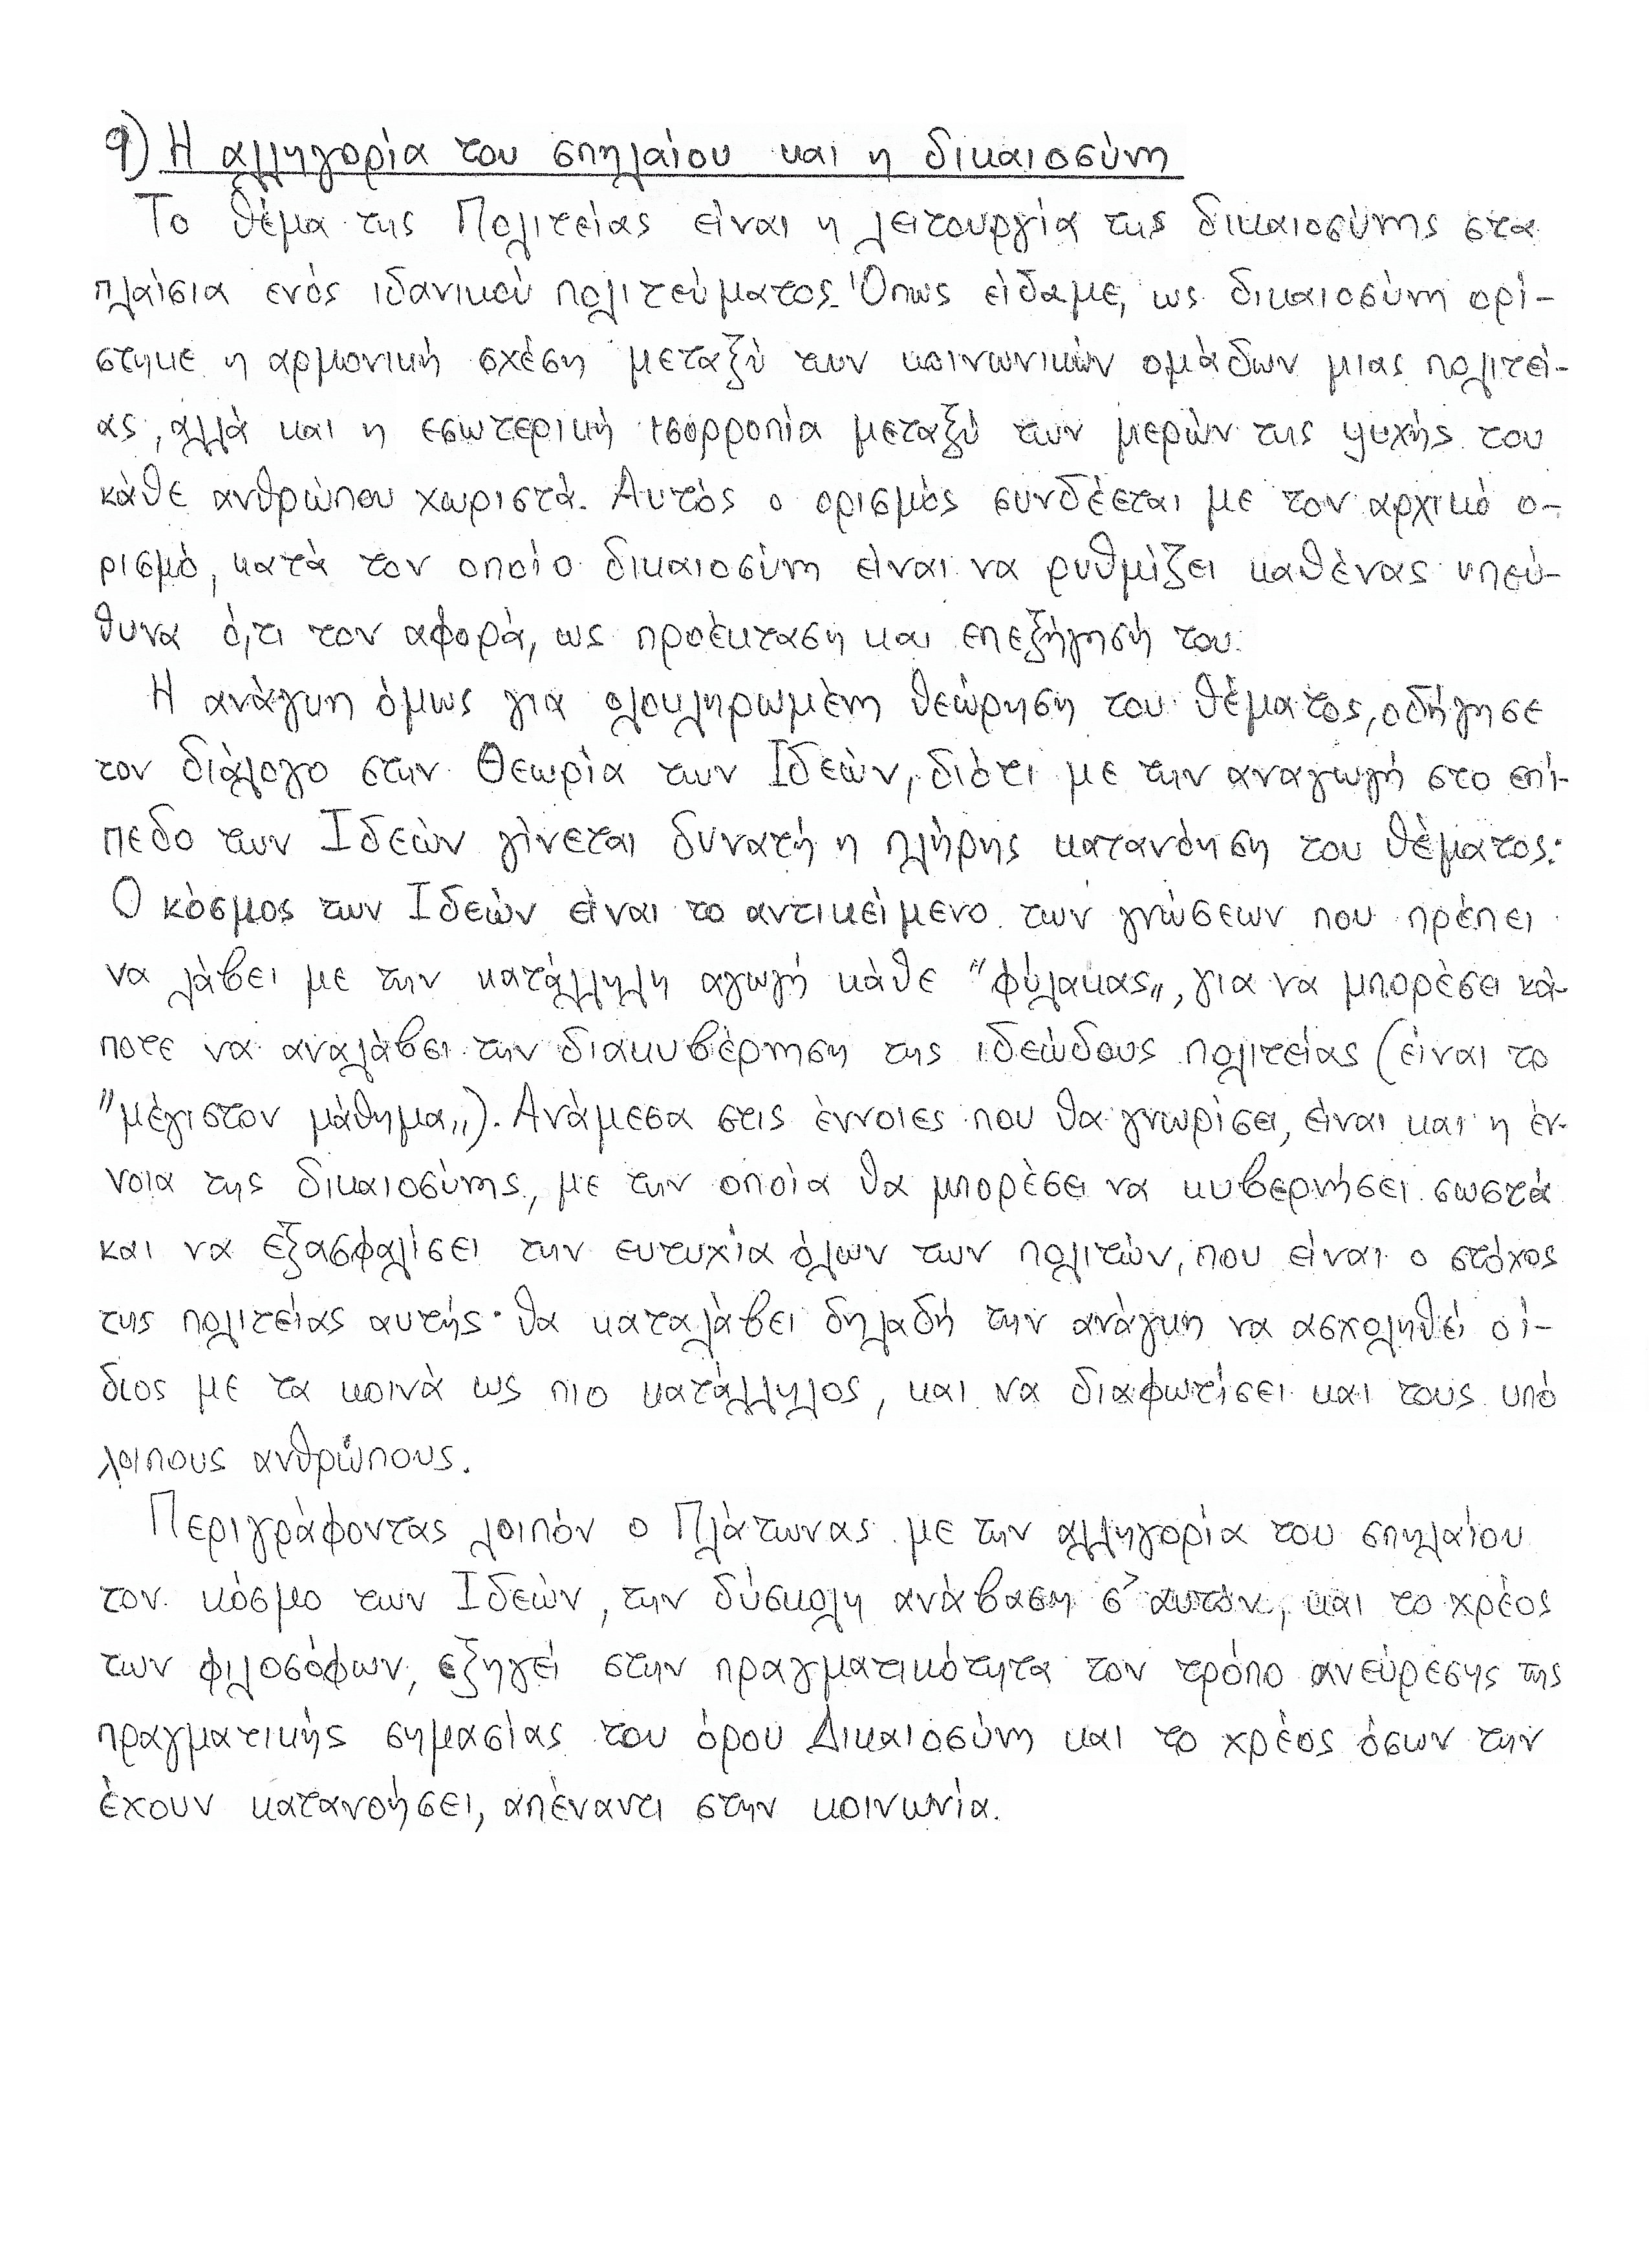 9) Η αλληγορία του σπηλαίου και η δικαιοσύνη
Το θέμα της Πολιτείας είναι η λειτουργία της δικαιοσύνης στα
πλαίσια ενός ιδανικού πολιτεύματος. Όπως είδαμε, ως δικαιοσύνη ορί-
στηκε η αρμονική σχέση μεταξύ των κοινωνικών ομάδων μιας πολιτεί-
ας, αλλά και η εσωτερική ισορροπία μεταξύ των μερών της ψυχής του
κάθε ανθρώπου χωριστά. Αυτός ο ορισμός συνδέεται με τον αρχικό ο-
ρισμό, κατά τον οποίο δικαιοσύνη είναι να ρυθμίζει καθένας υπεύ-
θυνα ό,τι τον αφορά, ως προέκταση και επεξήγησή του.
Η ανάγκη όμως για ολοκληρωμένη θεώρηση του θέματος, οδήγησε
τον διάλογο στην Θεωρία των Ιδεών, διότι με την αναγωγή στο επί-
πεδο των Ιδεών γίνεται δυνατή η πλήρης κατανόηση του θέματος:
Ο κόσμος των Ιδεών είναι το αντικείμενο των γνώσεων που πρέπει
να λάβει με την κατάλληλη αγωγή κάθε "φύλακας„, για να μπορέσει κά-
ποτε να αναλάβει την διακυβέρνηση της ιδεώδους πολιτείας (είναι το
"μέγιστον μάθημα„). Ανάμεσα στις έννοιες που θα γνωρίσει, είναι και η έν-
νοια της δικαιοσύνης, με την οποία θα μπορέσει να κυβερνήσει σωστά
και να εξασφαλίσει την ευτυχία όλων των πολιτών, που είναι ο στόχος
της πολιτείας αυτής· θα καταλάβει δηλαδή την ανάγκη να ασχοληθεί ο ί-
διος με τα κοινά ως πιο κατάλληλος, και να διαφωτίσει και τους υπό
λοιπους ανθρώπους.
Περιγράφοντας λοιπόν ο Πλάτωνας με την αλληγορία του σπηλαίου
τον κόσμο των Ιδεών, την δύσκολη ανάβαση σ' αυτόν, και το χρέος
των φιλοσόφων, εξηγεί στην πραγματικότητα τον τρόπο ανεύρεσης της
πραγματικής σημασίας του όρου Δικαιοσύνη και το χρέος όσων την
έχουν κατανοήσει, απέναντι στην κοινωνία.